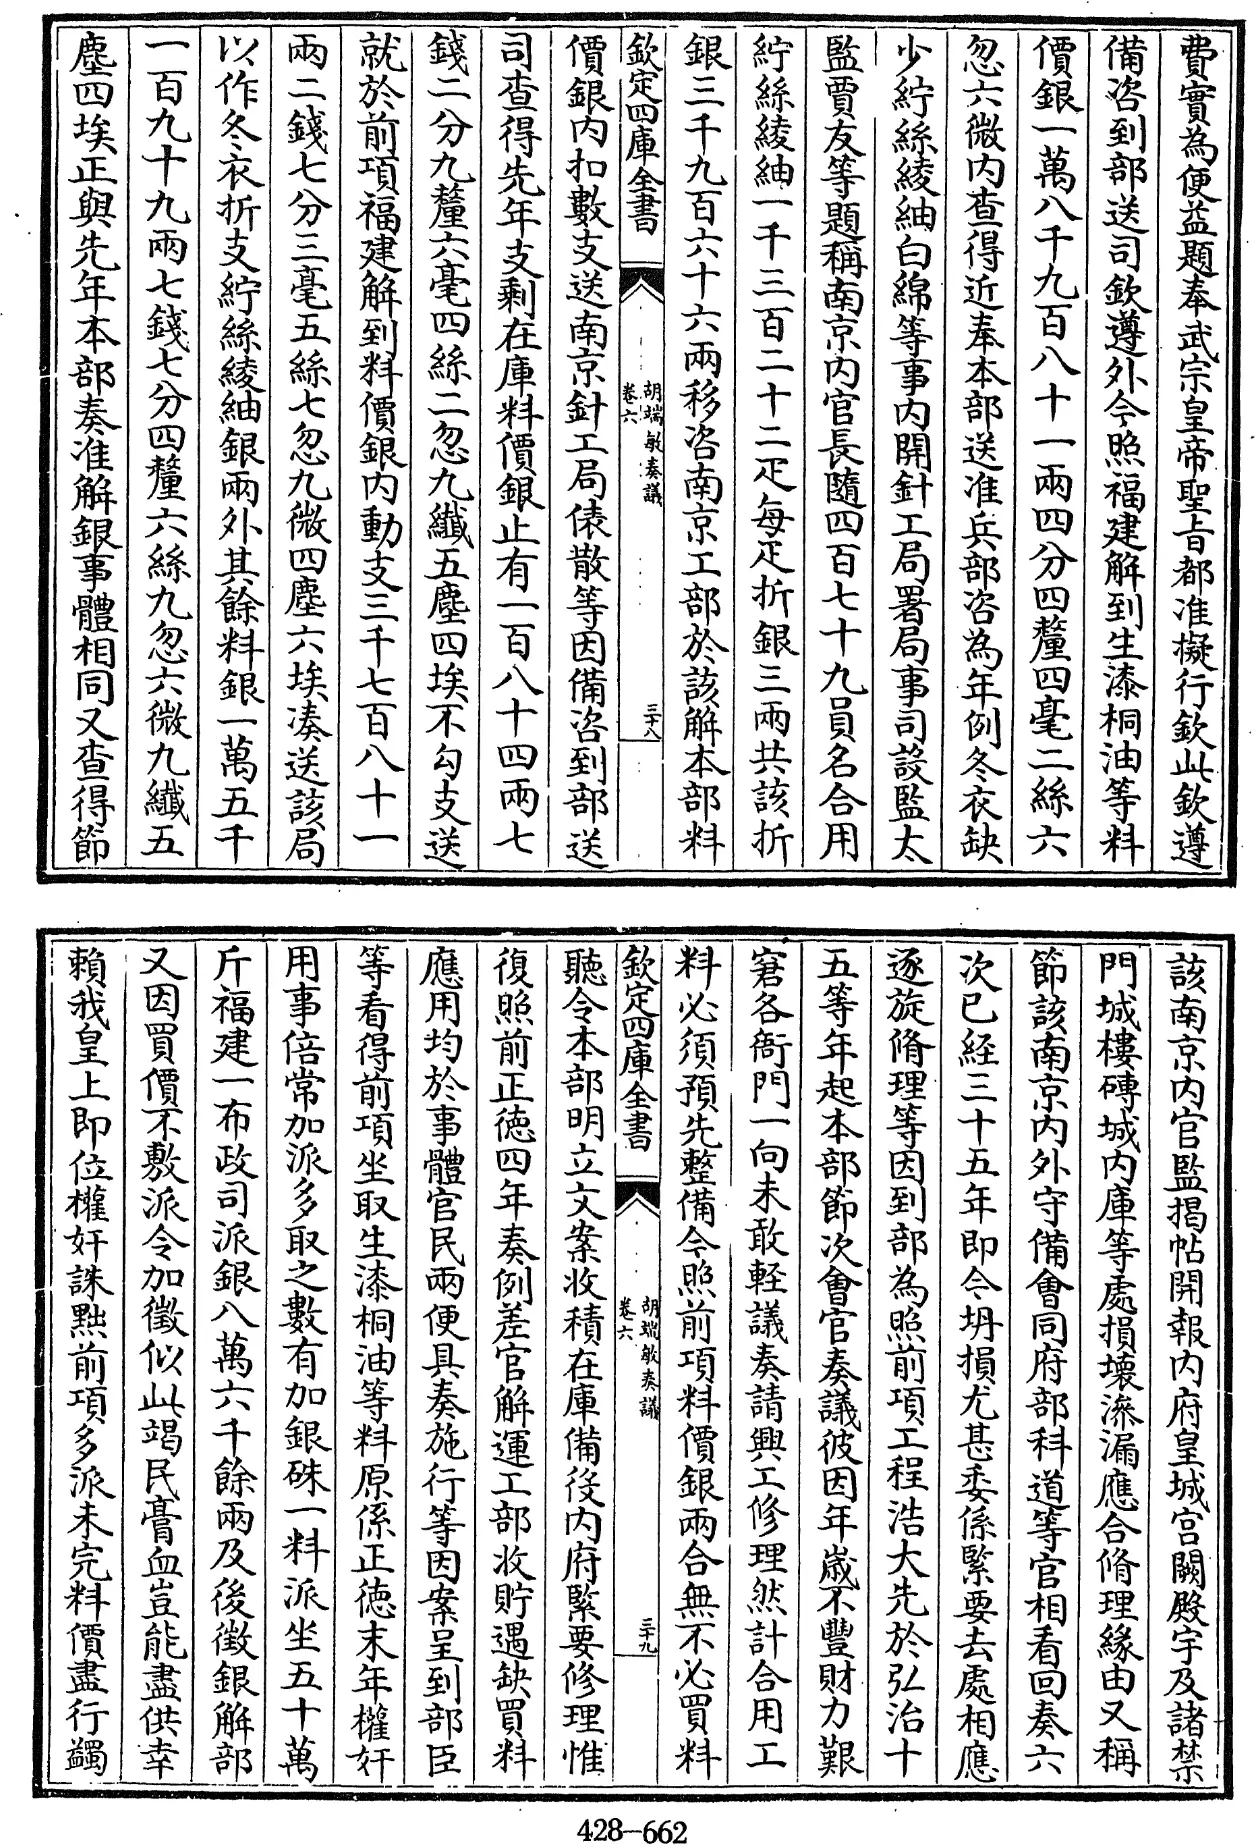 費實為便益題奉武宗皇帝聖旨都准擬行欽此欽遵
備咨到部送司欽遵外今照福建解到生漆桐油等料
價銀一萬八千九百八十一兩四分四釐四毫二絲六
忽六微内查得近奉本部送准兵部咨為年例冬衣缺
少紵絲綾紬白綿等事内開針工局署局事司設監太
監賈友等題稱南京内官長隨四百七十九員名合用
紵絲綾紬一千三百二十二疋每疋折銀三兩共該折
銀三千九百六十六兩移咨南京工部於該解本部料
欽定四庫全書
胡端敏奏議
卷六
三十八
價銀内扣數支送南京針工局俵散等因備咨到部送
司查得先年支剩在庫料價銀止有一百八十四兩七
錢二分九釐六毫四絲二忽九纖五塵四埃不勾支送
就於前項福建解到料價銀内動支三千七百八十一
兩二錢七分三毫五絲七忽九微四塵六埃湊送該局
以作冬衣折支紵絲綾紬銀兩外其餘料銀一萬五千
一百九十九兩七錢七分四釐六絲九忽六微九纖五
塵四埃正與先年本部奏准解銀事體相同又查得節
該南京内官監揭帖開報内府皇城宫闕殿宇及諸禁
門城樓磚城内庫等處損壞滲漏應合脩理緣由又稱
節該南京内外守備會同府部科道等官相看回奏六
次已經三十五年即今坍損尤甚委係緊要去處相應
逐旋脩理等因到部為照前項工程浩大先於弘治十
五等年起本部節次會官奏議彼因年歲不豐財力艱
窘各衙門一向未敢輕議奏請興工修理然計合用工
料必須預先整備今照前項料價銀兩合無不必買料
欽定四庫全書
胡端敏奏議
卷六
三十九
聽令本部明立文案收積在庫備後内府緊要修理惟
復照前正德四年奏例差官解運工部收貯遇缺買料
應用均於事體官民兩便具奏施行等因案呈到部臣
等看得前項坐取生漆桐油等料原係正德末年權奸
用事倍常加派多取之數有加銀硃一料派坐五十萬
斤福建一布政司派銀八萬六千餘兩及後徵銀解部
又因買價不敷派令加徵似此竭民膏血豈能盡供幸
賴我皇上即位權奸誅黜前項多派未完料價盡行蠲
428-662